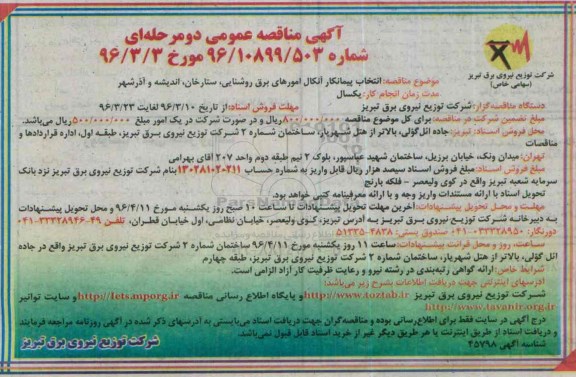 آگهی مناقصه عمومی دومرحله‌ای
شماره ۹۶/۱۰۸۹۹/۵۰۳ مورخ ۹۶/۳/۳
شرکت توزیع نیروی برق تبریز
(سهامی خاص)
موضوع مناقصه: انتخاب پیمانکار آنکال امورهای برق روشنایی، ستارخان، اندیشه و آذرشهر
مدت زمان انجام کار: یکسال
دستگاه مناقصه‌گزار: شرکت توزیع نیروی برق تبریز مهلت فروش اسناد: از تاریخ ۹۶/۳/۱۰ لغایت ۹۶/۳/۲۳
مبلغ تضمین شرکت در مناقصه: برای کل موضوع مناقصه ۸۰۰/۰۰۰/۰۰۰ ریال و در صورت شرکت در یک امور مبلغ ۵۰۰/۰۰۰/۰۰۰ ریال می‌باشد.
محل فروش اسناد: تبریز: جاده ائل‌گولی، بالاتر از هتل شهریار، ساختمان شماره ۲ شرکت توزیع نیروی برق تبریز، طبقه اول، اداره قراردادها و
مناقصات
تهران: میدان ونک، خیابان برزیل، ساختمان شهید عباسپور، بلوک ۲ نیم طبقه دوم واحد ۲۰۷ آقای بهرامی
مبلغ فروش اسناد: مبلغ فروش اسناد سیصد هزار ریال قابل واریز به شماره حساب ۱۳۰۲۸۱۰۲۰۲۱۱ بنام شرکت توزیع نیروی برق تبریز نزد بانک
سرمایه شعبه تبریز واقع در کوی ولیعصر - فلکه بارنج
تحویل اسناد با ارائه مستندات واریز وجه و با ارائه معرفینامه کتبی خواهد بود.
مهلت و محل تحویل پیشنهادات: آخرین مهلت تحویل پیشنهادات تا ساعت ۱۰ صبح روز یکشنبه مورخ ۹۶/۴/۱۱ و محل تحویل پیشنهادات
به دبیرخانه شرکت توزیع نیروی برق تبریز به آدرس تبریز، کوی ولیعصر، خیابان نظامی، اول خیابان قطران، تلفن ۴۹-۰۴۱-۳۳۳۲۸۹۴۶
دورنگار: ۰۴۱-۳۳۳۲۸۹۵۰ صندوق پستی: ۴۸۳۸-۵۱۳۳۵
ساعت، روز و محل قرائت پیشنهادات: ساعت ۱۱ روز یکشنبه مورخ ۹۶/۴/۱۱ ساختمان شماره ۲ شرکت توزیع نیروی برق تبریز واقع در جاده
ائل گولی، بالاتر از هتل شهریار، ساختمان شماره ۲ شرکت توزیع نیروی برق تبریز، طبقه چهارم
شرایط خاص: ارائه گواهی رتبه‌بندی در رشته نیرو و رعایت ظرفیت کار آزاد الزامی است.
آدرسهای اینترنتی جهت دریافت اطلاعات بشرح زیر می‌باشد:
شرکت توزیع نیروی برق تبریز http://www.toztab.ir و پایگاه اطلاع رسانی مناقصه http://iets.mporg.ir و سایت توانیر
http://www.tavanir.org.ir
درج آگهی در سایت فقط برای اطلاع‌رسانی بوده و مناقصه‌گران جهت دریافت اسناد می‌بایستی به آدرسهای ذکر شده در آگهی روزنامه مراجعه فرمایند
و دریافت اسناد از طریق اینترنت یا هر طریق دیگر غیر از خرید اسناد قابل قبول نمی‌باشد.
شناسه آگهی ۴۵۷۹۸
شرکت توزیع نیروی برق تبریز